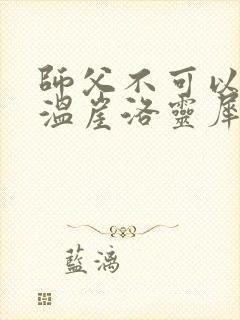 師父不可以
溫崖洛靈犀
藍漓